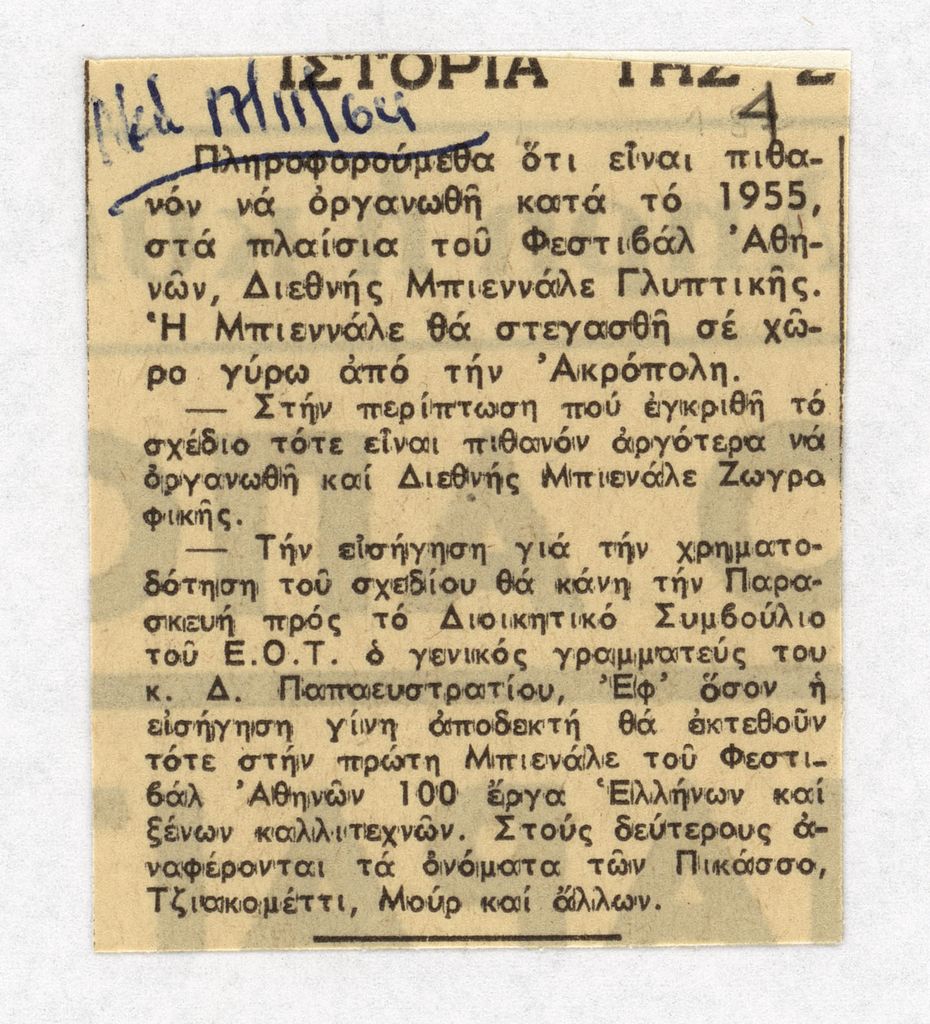 ΙΣΤΟΡΙΑ ΤΗΣ Σ
17/11/64
4
Πληροφορούμεθα ὅτι εἶναι πιθα-
νόν νά ὀργανωθῆ κατά τό 1955,
στά πλαίσια τοῦ Φεστιβάλ Ἀθη-
νῶν, Διεθνής Μπιεννάλε Γλυπτικῆς.
Ἡ Μπιεννάλε θά στεγασθῆ σέ χῶ-
ρο γύρω ἀπό τήν Ἀκρόπολη.
— Στήν περίπτωση πού ἐγκριθῆ τό
σχέδιο τότε εἶναι πιθανόν ἀργότερα νά
ὀργανωθῆ καί Διεθνής Μπιενάλε Ζωγρα
φικῆς.
— Τήν εἰσήγηση γιά τήν χρηματο-
δότηση τοῦ σχεδίου θά κάνη τήν Παρα-
σκευή πρός τό Διοικητικό Συμβούλιο
τοῦ Ε.Ο.Τ. ὁ γενικός γραμματεύς του
κ. Δ. Παπαευστρατίου, Ἐφ' ὅσον ἡ
εἰσήγηση γίνη ἀποδεκτή θά ἐκτεθοῦν
τότε στήν πρώτη Μπιενάλε τοῦ Φεστι-
βάλ Ἀθηνῶν 100 ἔργα Ἑλλήνων καί
ξένων καλλιτεχνῶν. Στούς δεύτερους ἀ-
ναφέρονται τά ὀνόματα τῶν Πικάσσο,
Τζιακομέττι, Μούρ καί ἄλλων.